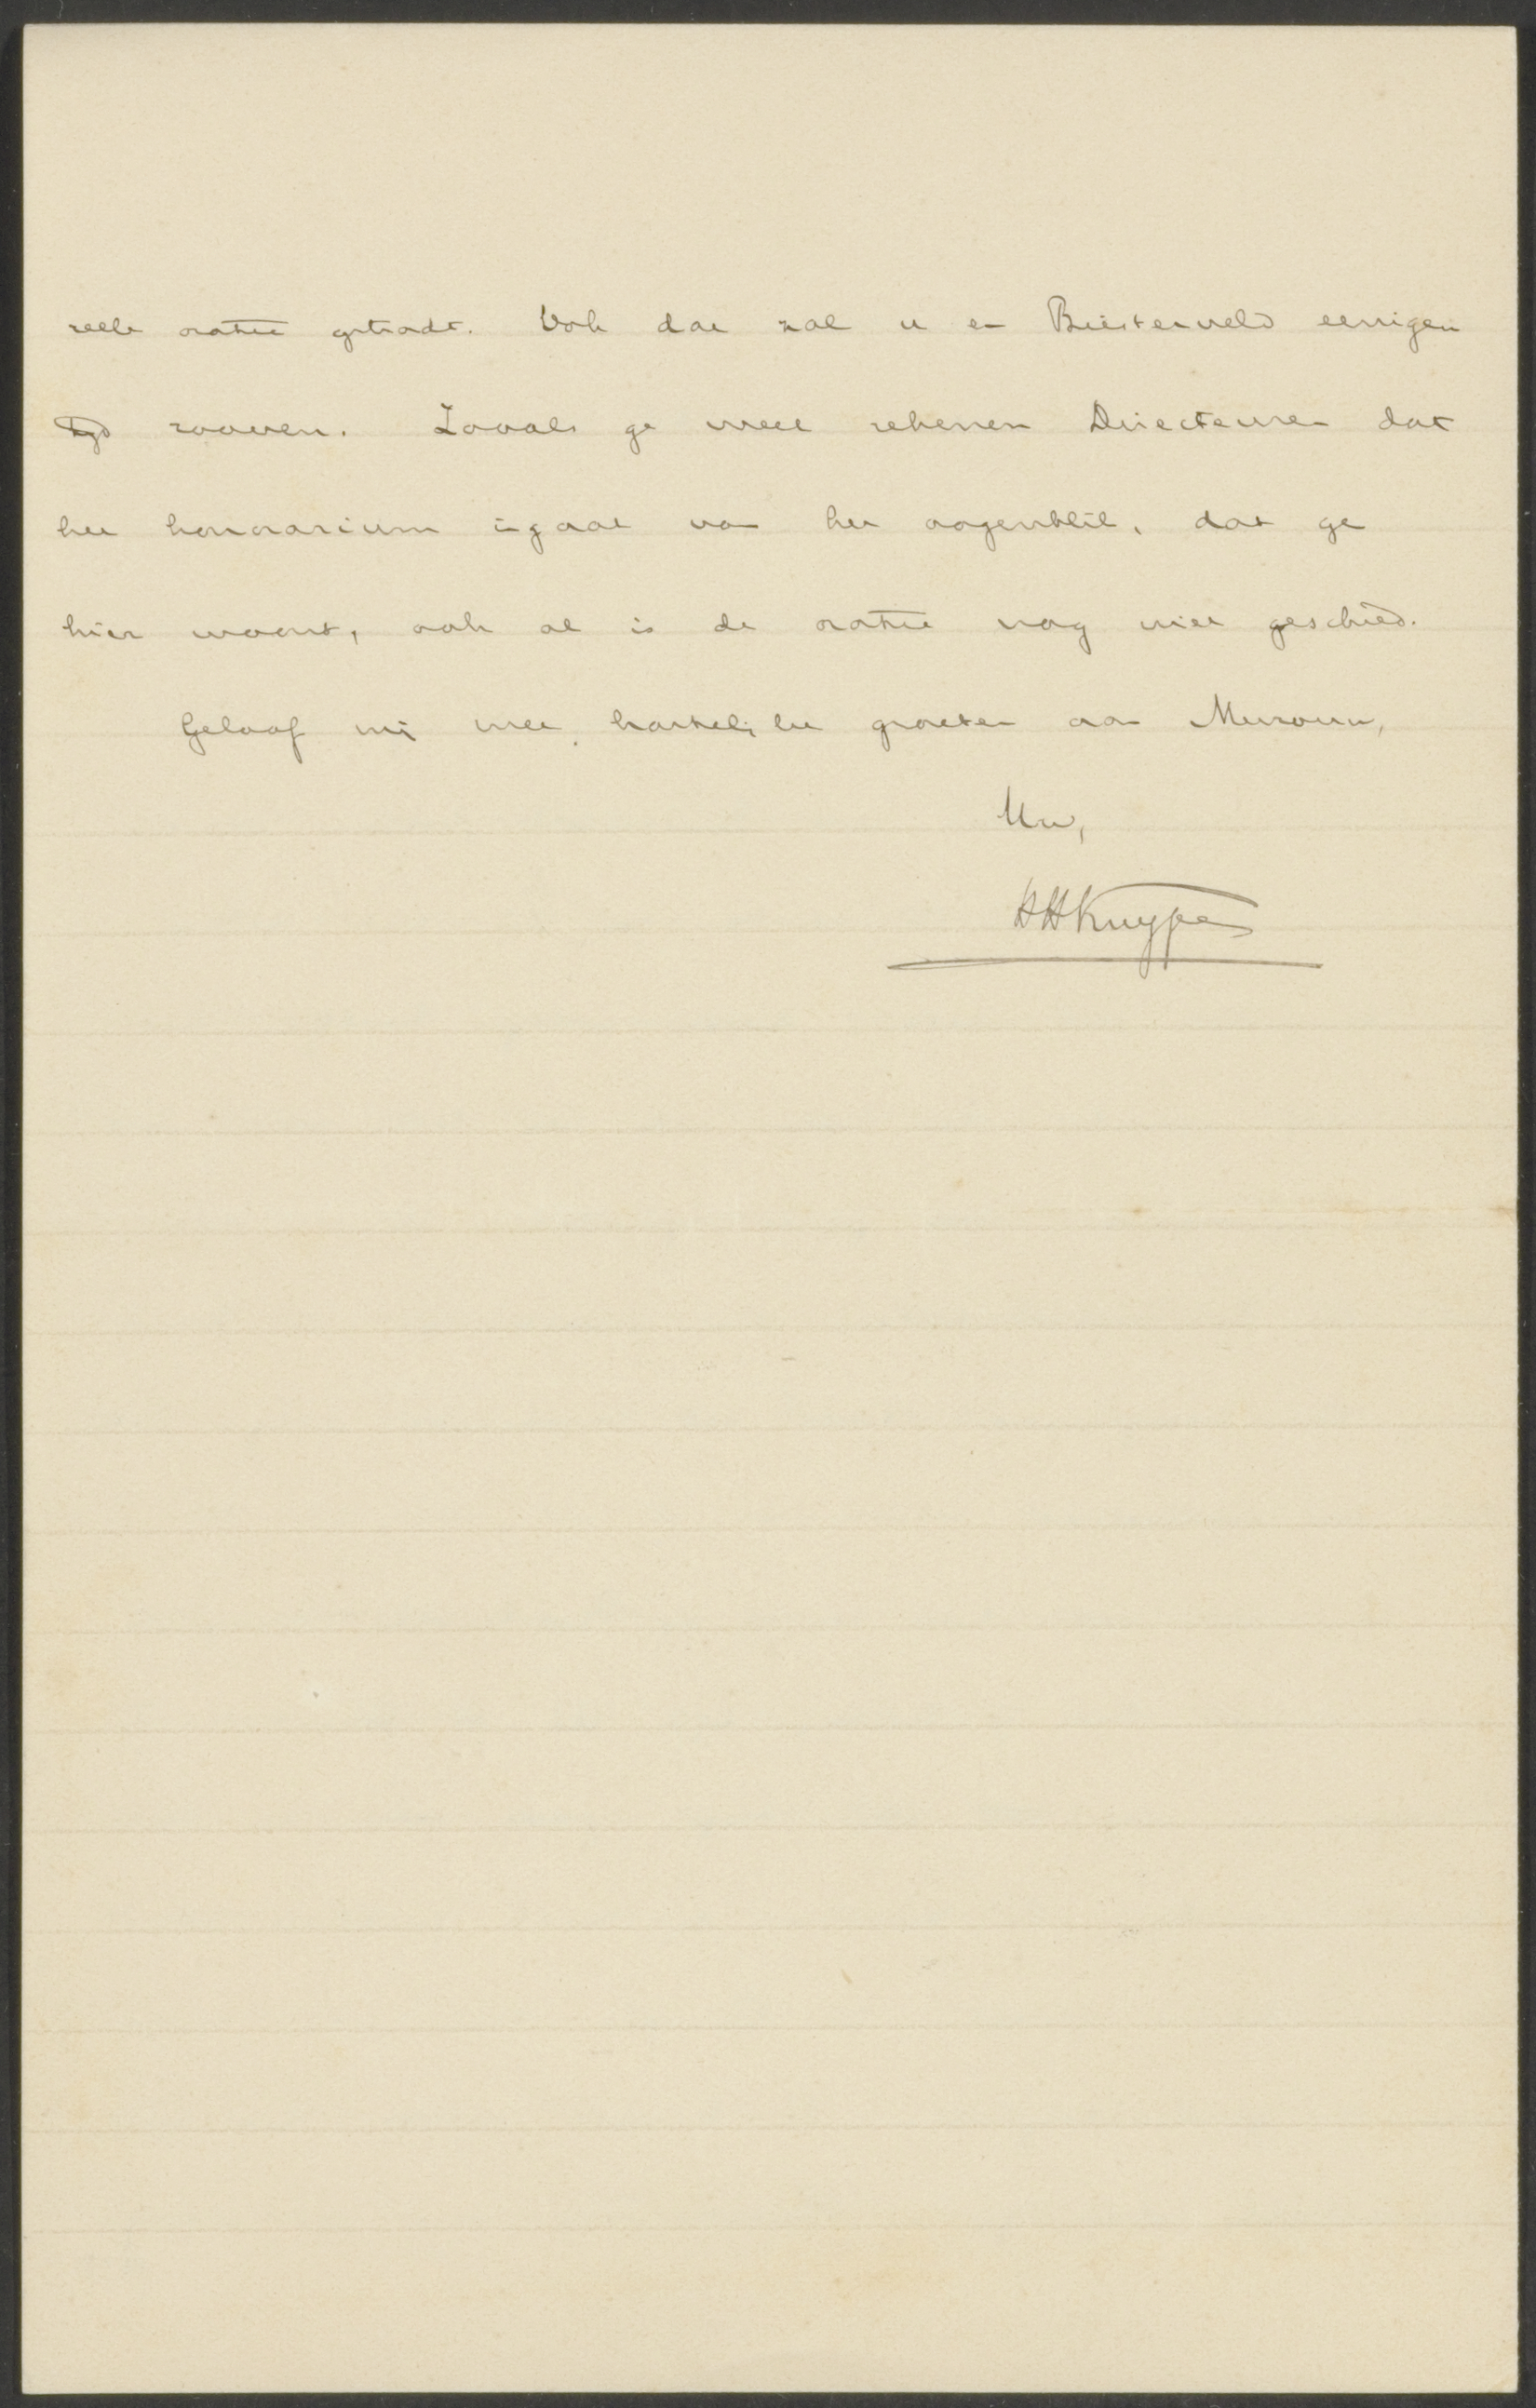 reele oratie getracht. Ook dat zal u en Biesterveld eenigen
tijd rooven. Zooals ge weet rekenen Directeuren dat
het honorarium ingaat van het oogenblik, dat ge
hier woont, ook al is de oratie nog niet geschied.
Geloof mij met hartelijke groeten aan Mevrouw,
Uw,
HHKuyper